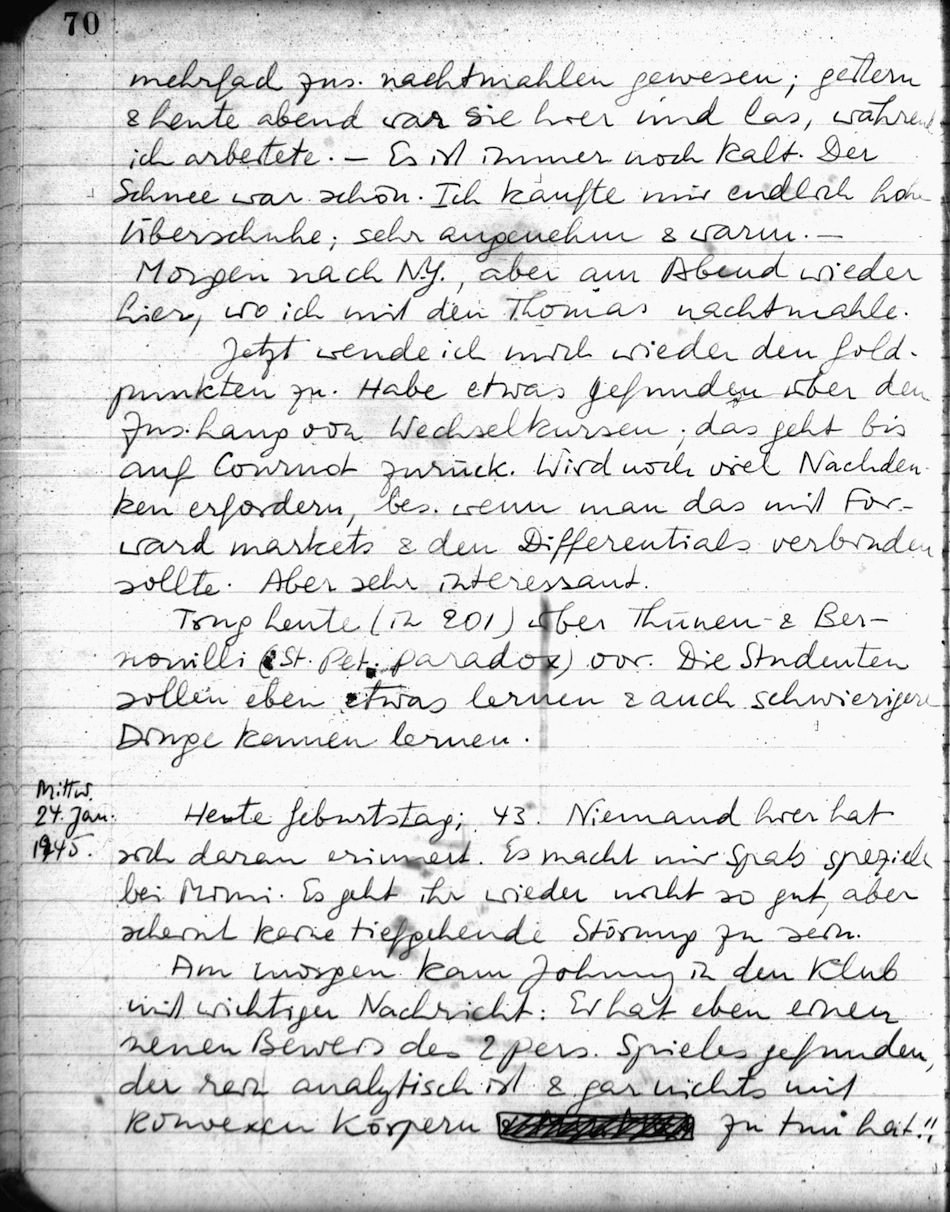 70
mehrfach zus. nachtmahlen gewesen; gestern
& heute abend war sie hier und las, während
ich arbeitete. — Es ist immer noch kalt. Der
Schnee war schön. Ich kaufte mir endlich hohe
Überschuhe; sehr angenehm & warm. —
Morgen nach N.Y., aber am Abend wieder
hier, wo ich mit den Thomas nachtmahle.
Jetzt wende ich mich wieder den Gold-
punkten zu. Habe etwas gefunden über den
Zus.hang von Wechselkursen; das geht bis
auf Cournot zurück. Wird noch viel Nachden-
ken erfordern, bes. wenn man das mit For-
ward markets & den Differentials verbinden
sollte. Aber sehr interessant.
Trug heute (in 201) über Thünen & Ber-
nouilli (St. Pet. paradox) vor. Die Studenten
sollen eben etwas lernen & auch schwierigere
Dinge kennen lernen.
Mittw.
24. Jan.
1945.
Heute Geburtstag; 43. Niemand hier hat
sich daran erinnert. Es macht mir Spaß speziell
bei Mimi. Es geht ihr wieder nicht so gut, aber
scheint keine tiefgehende Störung zu sein.
Am morgen kam Johnny in den Klub
mit wichtiger Nachricht: Er hat eben einen
neuen Beweis des 2 pers. Spieles gefunden,
der rein analytisch ist & gar nichts mit
konvexen Körpern zu tun hat!!